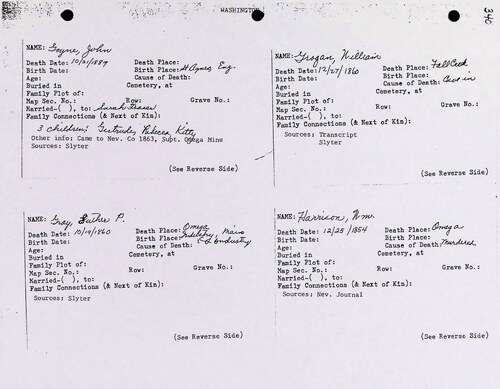 WASHINGTON
340
NAME: Goyne, John
Death Date: 10/21/1889 Death Place:
Birth Date: Birth Place: St Agnes, Eng.
Age: Cause of Death:
Buried in Cemetery, at
Family Plot of:
Map Sec. No.: Row: Grave No.:
Married-( ), to: Sarah
Family Connections (& Next of Kin):
3 children: Gertrude, Rebecca, Kitty
Other info: Came to Nev. Co 1863, Supt. Omega Mine
Sources: Slyter
(See Reverse Side)
NAME: Grogan, William
Death Date: 12/27/1860 Death Place: Fall Creek
Birth Date: Birth Place:
Age: Cause of Death: Cave in
Buried in Cemetery, at
Family Plot of:
Map Sec. No.: Row: Grave No.:
Married-( ), to:
Family Connections (& Next of Kin):
Sources: Transcript
Slyter
(See Reverse Side)
NAME: Gray, Luther P.
Death Date: 10/19/1860 Death Place: Omega
Birth Date: Birth Place: Maine
Age: Cause of Death:
Buried in Cemetery, at
Family Plot of:
Map Sec. No.: Row: Grave No.:
Married-( ), to:
Family Connections (& Next of Kin):
Sources: Slyter
(See Reverse Side)
NAME: Harrison, Wm.
Death Date: 12/25/1854 Death Place: Omega
Birth Date: Birth Place:
Age: Cause of Death: Murdered
Buried in Cemetery, at
Family Plot of:
Map Sec. No.: Row: Grave No.:
Married-( ), to:
Family Connections (& Next of Kin):
Sources: Nev. Journal
(See Reverse Side)